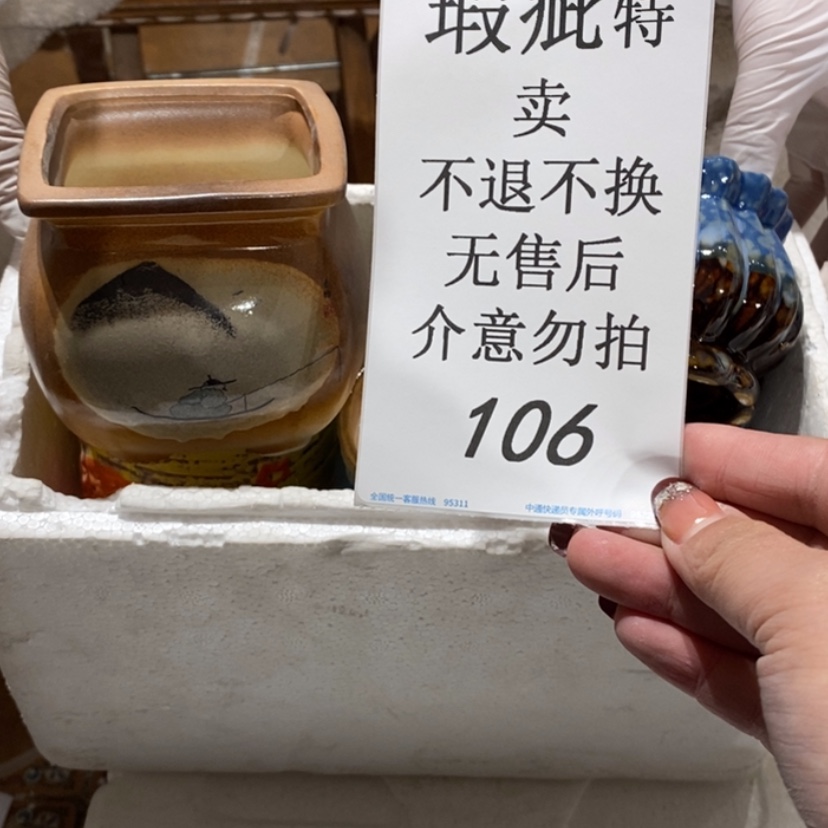 瑕疵特
卖
不退不换
无售后
介意勿拍
106
全国统一客服热线 95311
中通快递员专属外呼号码